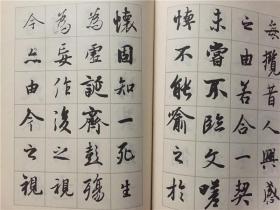 每攬昔人興感
之由若合一契
未嘗不臨文嗟
悼不能喻之於
懷固知一死生
為虛誕齊彭殤
為妄作後之視
今亦由今之視